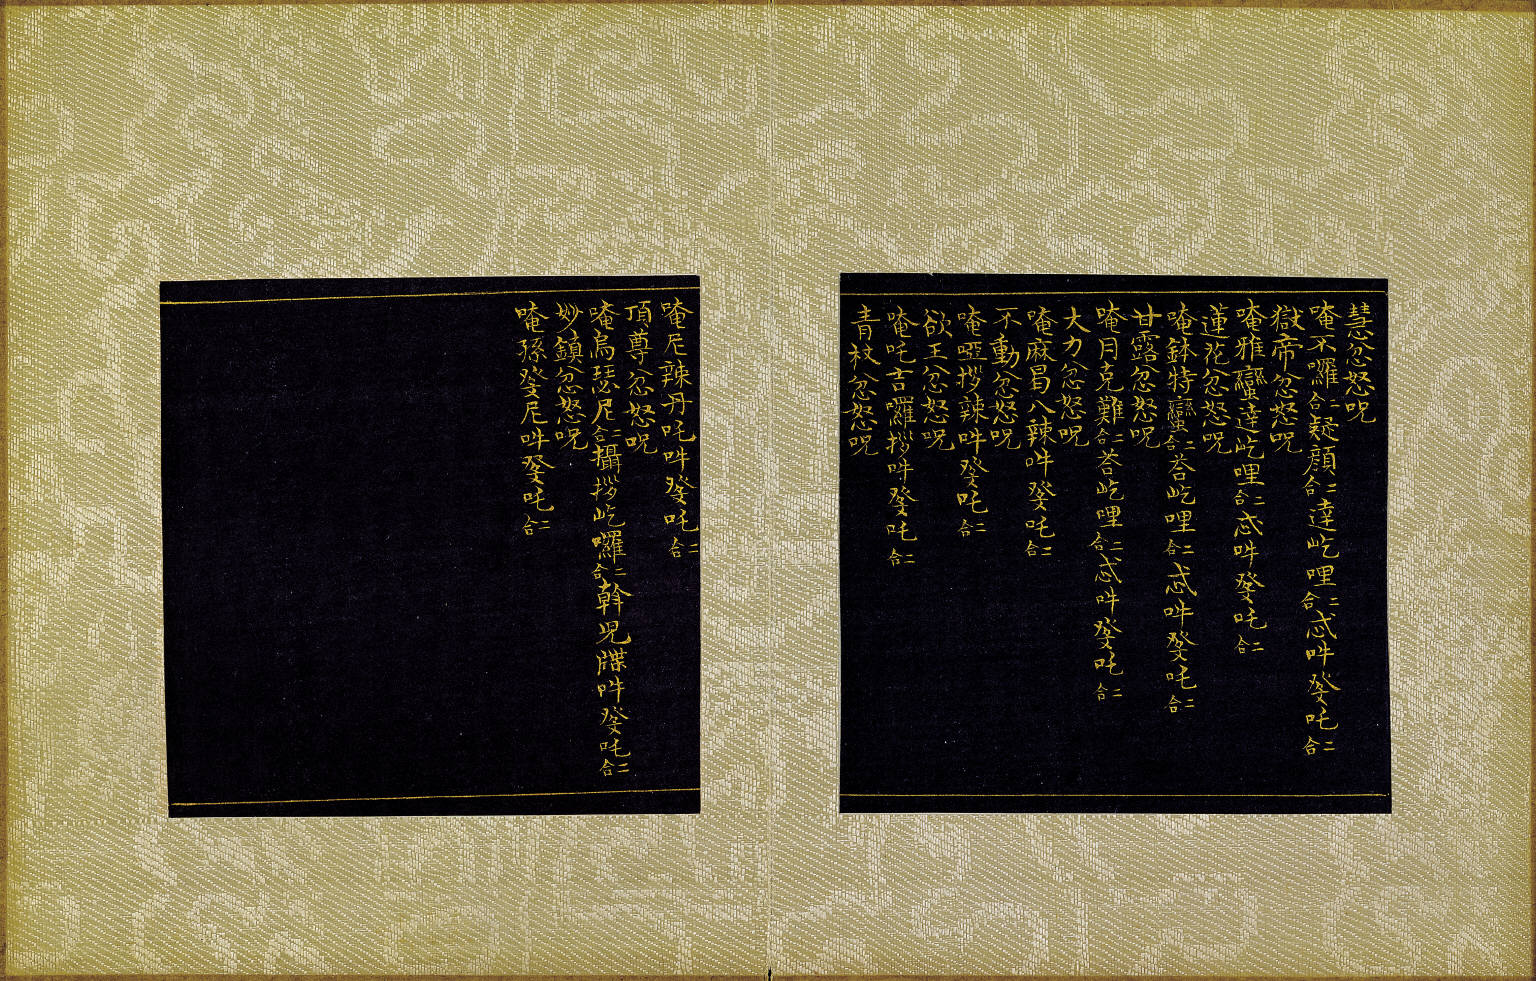 慧忿怒呪
唵不囉二合疑顔二合達屹哩二合忒吽癹吒二合
獄帝忿怒呪
唵雅蠻達屹哩二合忒吽癹吒二合
蓮花忿怒呪
唵鉢特蠻二合荅屹哩二合忒吽癹吒二合
甘露忿怒呪
唵月克難二合荅屹哩二合忒吽癹吒二合
大力忿怒呪
唵麻昌八辣吽癹吒二合
不動忿怒呪
唵啞拶辣吽癹吒二合
欲王忿怒呪
唵吒吉囉拶吽癹吒二合
青杖忿怒呪
唵尼辣丹吒吽癹吒二合
頂尊忿怒呪
唵烏瑟尼二合攝拶屹囉二合斡児牒吽癹吒二合
妙鎮忿怒呪
唵孫癹尼吽癹吒二合